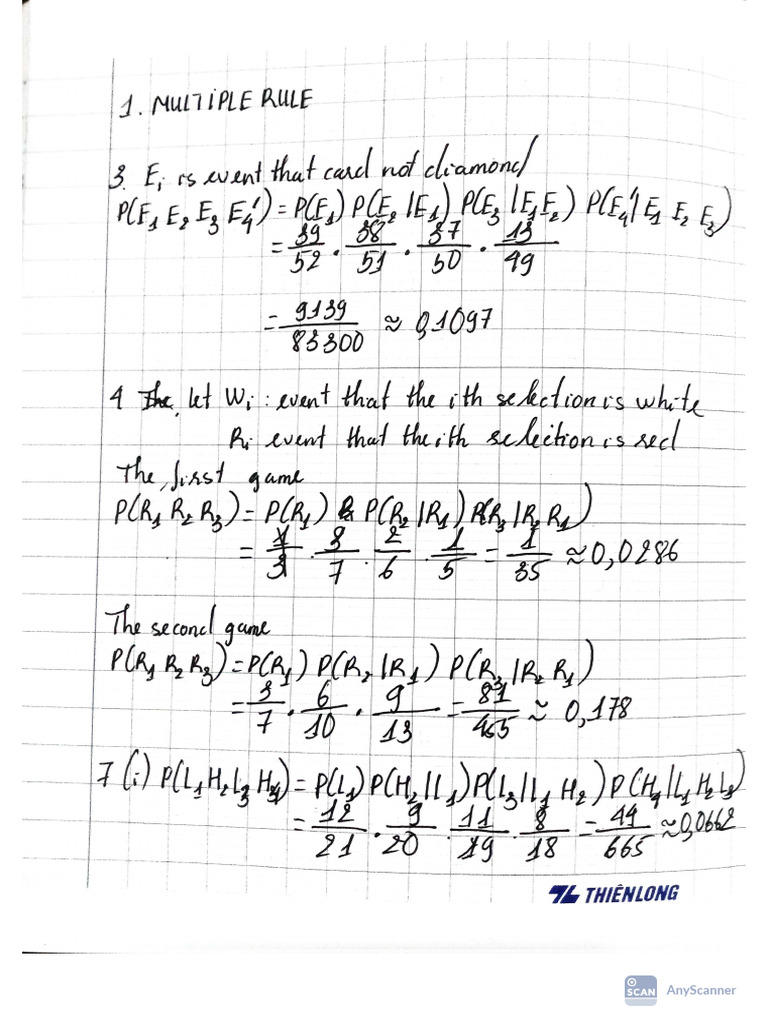 1. MULTIPLE RULE
3. Ei is event that card not diamond
P(E1 E2 E3 E4') = P(E1) P(E2 |E1) P(E3 |E1E2) P(E4'| E1 E2 E3)
= 39/52 . 38/51 . 37/50 . 13/49
= 9139/83300 ≈ 0,1097
4 The, let Wi : event that the ith selection is white
Ri event that the ith selection is red
The first game
P(R1 R2 R3) = P(R1) P(R2 |R1) P(R3 |R2 R1)
= 3/7 . 2/6 . 1/5 = 1/35 ≈ 0,0286
The second game
P(R1 R2 R3) = P(R1) P(R2 |R1) P(R3 |R2 R1)
= 3/7 . 6/10 . 9/13 = 81/455 ≈ 0,178
7 (i) P(L1H2L3 H4) = P(L1) P(H2 |L1) P(L3 |L1 H2) P(H4 |L1 H2L3)
= 12/21 . 9/20 . 11/19 . 8/18 = 44/665 ≈ 0,0662
THIÊN LONG
SCAN AnyScanner